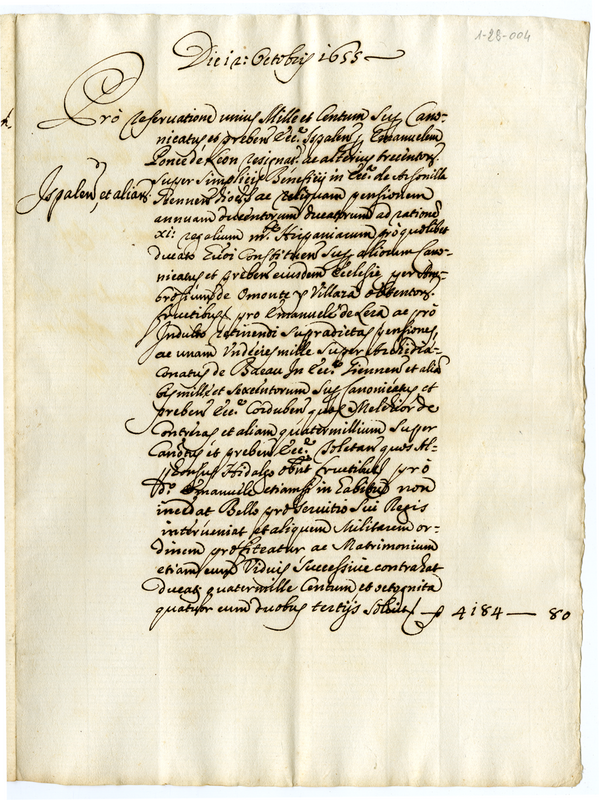 1-28-004
Die 12: Octobris 1655
Pro reservatione unius Mille et Centum sup Cano-
nicatu et preben Ecc.ª Ispalen p Emanuelem
Ponce de Leon resignat. ac alterius trecentors.
Ispalen, et aliar.
super simplici Beneficio in Ecc.ª de
Giennen dioces ac reliquam pensionem
annuam ducentorum ducatorum ad ratione
xi: regalium Hispaniarum pro quolibet
ducato Constituen sup aliorum Cano-
nicatus et preben eiusdem Ecclesie per Am-
brosium de Omonte y Villara obtentor.
fructibus pro Emanuele de Lera ac pro
Indulto retinendi supradictas pensiones,
ac unam Undecies mille super Archidia-
conatus de Baeau In Ecc.ª Giennen et alia
bis mille et sexcentorum sup Canonicatus et
preben Ecc.ª Corduben quos Melchior de
Contreras et aliam quatermillium super
Can.tus et preben Ecc.ª Toletan quos Al-
phonsus Hidalgo obt.nt fructibus pro
D. Emanuele etiamsi in habitu non
incedat Bello pro servitio sui Regis
interveniat et aliquem Militarem or-
dinem profiteatur ac Matrimonium
etiam cum Viduis successive contrahat
ducat quatermille Centum et octoginta
quatuor cum duobus tertiis p 4184 — 80